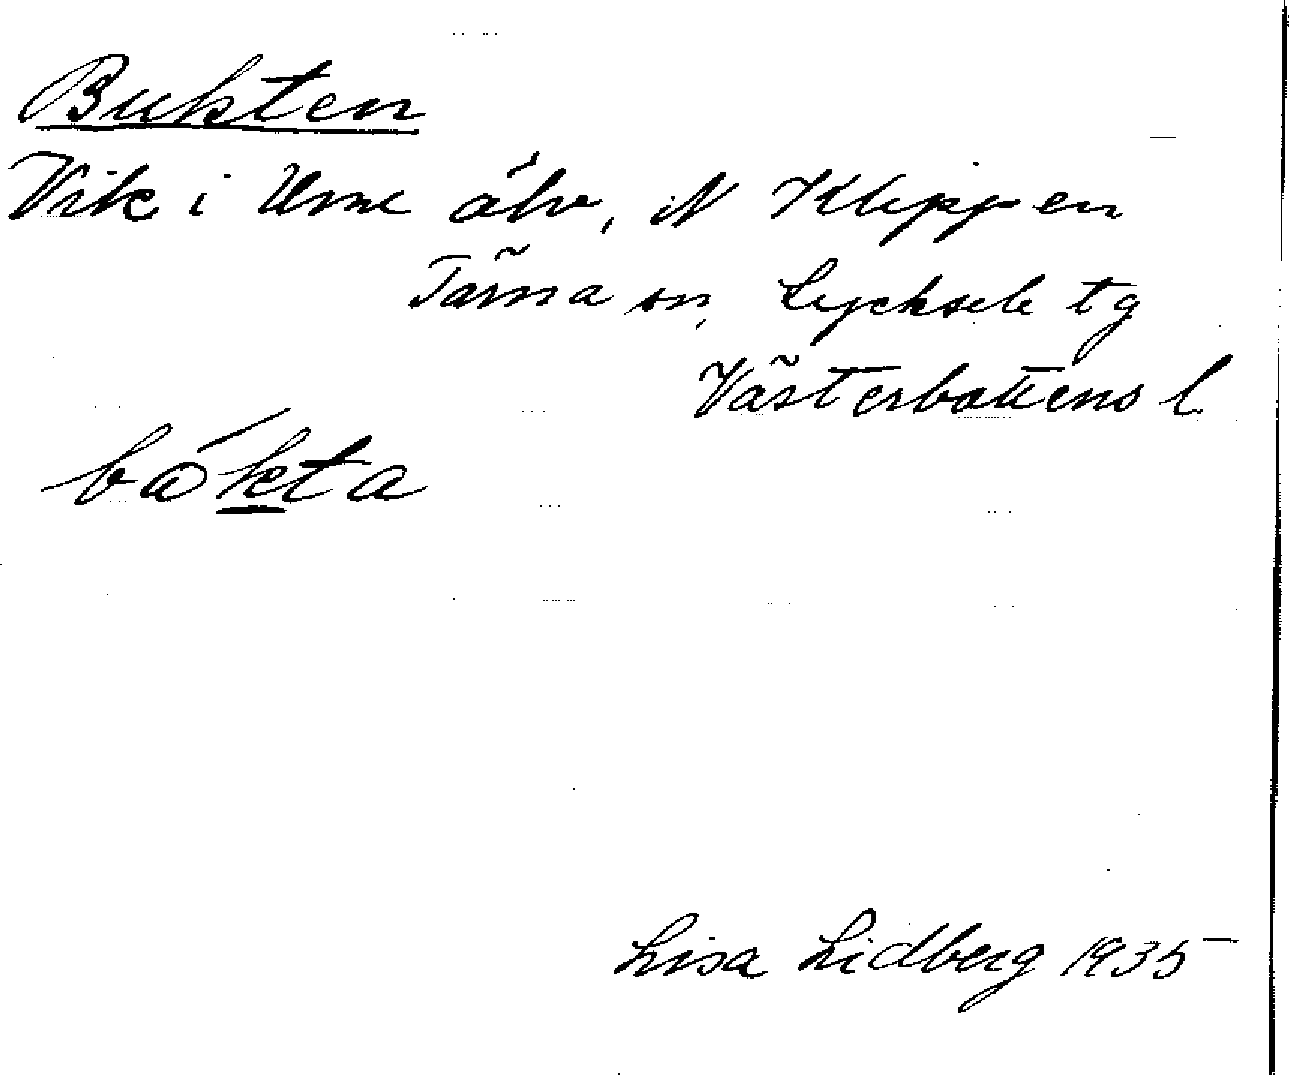 Bukten
Vik i Ume älv, N Klippen
Tärna sn, Lycksele tg
Västerbottens l
bákta
Lisa Lidberg 1935